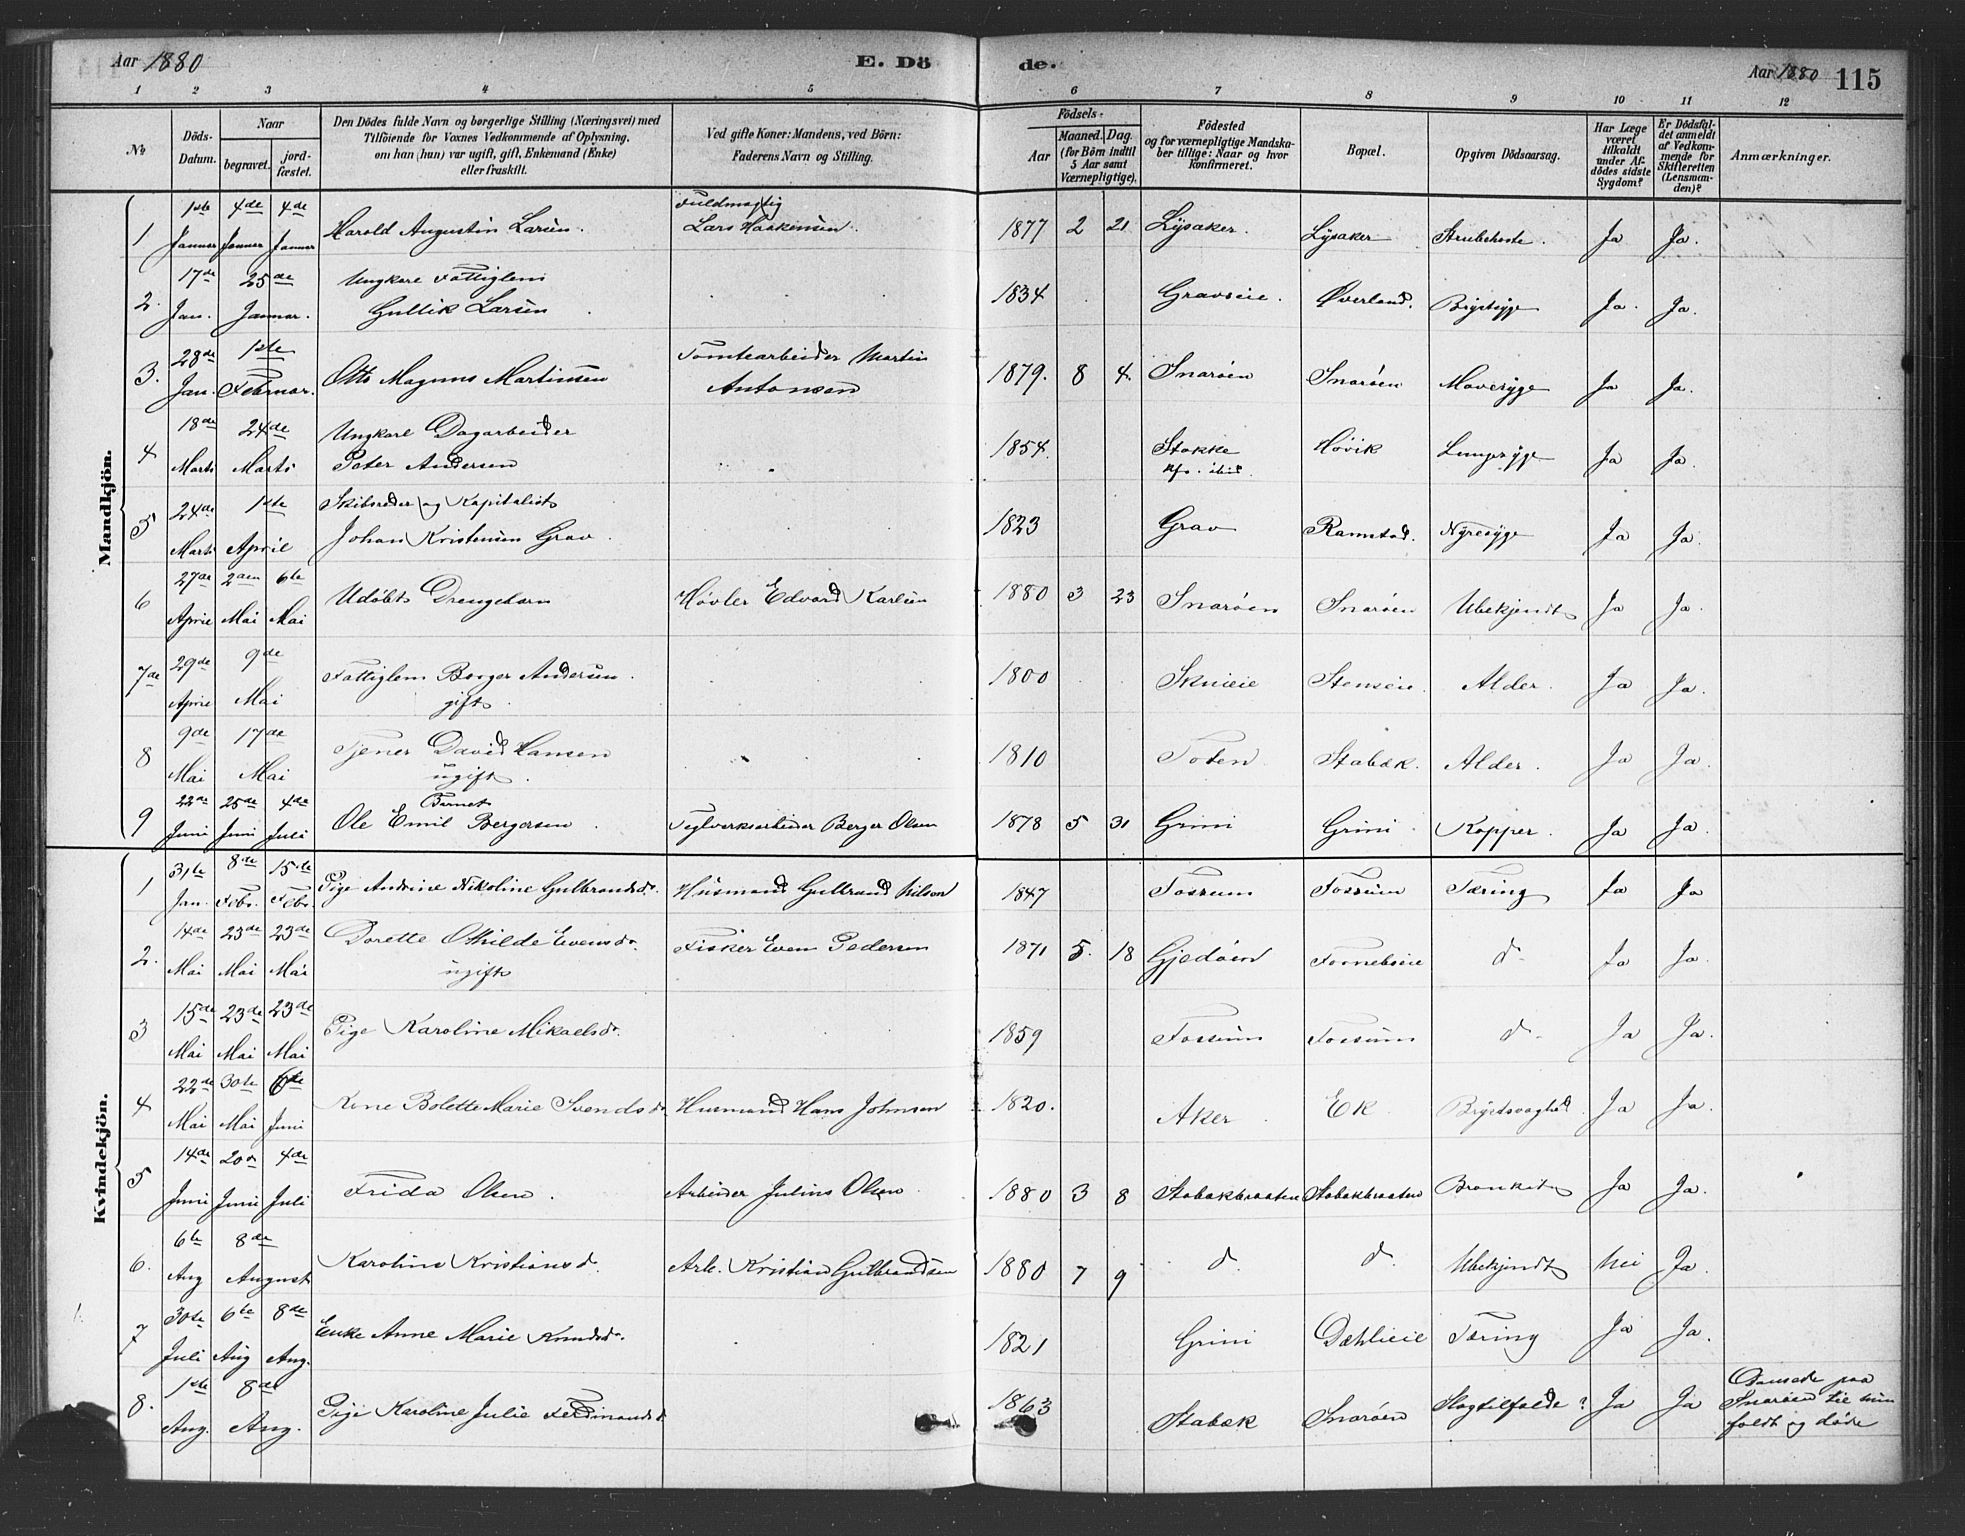 Aar 1880 E. Dö de. Aar 1880 115
1 2 3 4 5 6 7 8 9 10 11 12
№
Döds-Datum.
Naar
begravet.
jordfæstet.
Den Dödes fulde Navn og borgerlige Stilling (Næringsvei) med
Tilföiende for Voxnes Vedkommende af Oplysning,
om han (hun) var ugift, gift, Enkemand (Enke)
eller fraskilt.
Ved gifte Koner: Mandens, ved Börn:
Faderens Navn og Stilling.
Födsels-
Aar
Maaned. Dag.
(for Börn indtil
5 Aar samt
Værnepligtige).
Födested
og for værnepligtige Mandska-
ber tillige: Naar og hvor
konfirmeret.
Bopæl.
Opgiven Dödsaarsag.
Har Læge
været
tilkaldt
under Af-
dödes sidste
Sygdom?
Er Dödsfal-
det anmeldt
af Vedkom-
mende for
Skifteretten
(Lensman-
den)?
Anmærkninger.
Mandkjön.
1 1ste Januar 4de Januar 4de Januar Harold Augustin Larsen. Fuldmægtig Lars Haakensen. 1877 2 21 Lysaker. Lysaker Strubehoste. Ja Ja.
2. 17de Jan. 25de Januar. Ungkarl Fattiglem Gullik Larsen 1834 Gravseie. Øverland. Brystsyge Ja. Ja.
3. 28de Jan. 1ste Februar. Otto Magnus Martinsen Tomtearbeider Martin Antonsen 1879. 8 4. Snarøen Snarøen Mavesyge Ja Ja.
4 18de Marts 24de Marts Ungkarl Dagarbeider Peter Andersen 1854. Stokke kfr. ibid. Høvik Lungesyge Ja Ja.
5 24de Marts 1ste April Skibsreder og Kapitalist Johan Kristensen Grav. 1823 Grav Ramstad. Nyresyge Ja Ja.
6 27de April 2den Mai 6te Mai Udøbt Drengebarn Høvler Edvard Karlsen 1880 3 23 Snarøen Snarøen Ubekjendt Ja Ja.
7de 29de April 9de Mai Fattiglem Borger Andersen. gift. 1800 Skuieie Stenseie. Alder. Ja Ja.
8 9de Mai 17de Mai Tjener David Hansen ugift. 1810 Toten Stabæk. Alder. Ja Ja.
9 22de Juni 25de Juni 4de Juli Barnet Ole Emil Bergersen Teglverksarbeider Berger Olsen 1878 5 31 Grini Grini Kopper. Ja Ja.
Kvindekjön.
1 31te Jan. 8de Febr. 15de Febr. Pige Andrine Nikoline Gulbrandsdr. Husmand Gulbrand Nilsen 1847 Fossum Fossum Tæring Ja Ja
2. 14de Mai 23de Mai 23de Mai Dorette Othilde Evensdr. ugift Fisker Even Pedersen 1871 5. 18 Gjedøen Fornebøeie do Ja Ja.
3 15de Mai 23de Mai 23de Mai Pige Karoline Mikaelsdr. 1859 Fossum Fossum do Ja Ja.
4 22de Mai 30te Mai 6te Juni Kone Bolette Marie Svendsdr. Husmand Hans Johnsen 1820. Aker Ek Brystsvaghed Ja Ja.
5 14de Juni 20de Juni 4de Juli Frida Olsen. Arbeider Julius Olsen 1880 3 8 Stabækbraaten Stabækbraaten Bronkit Ja Ja.
6. 6te Aug 8de August Karoline Kristiansd. Arb. Kristian Gulbrandsen 1880 7 9 do. do. Ubekjendt Nei Ja.
7 30te Juli 6te Aug 8de Aug. Enke Anne Marie Knudsdr. 1821 Grini Dæhlieie Tæring Ja Ja.
8. 1ste Aug. 8de Aug. Pige Karoline Julie Ferdinandsd. 1863 Stabæk Snarøen Slagtilfælde? Ja Ja Dansede paa
Snarøen til hun
faldt og døde